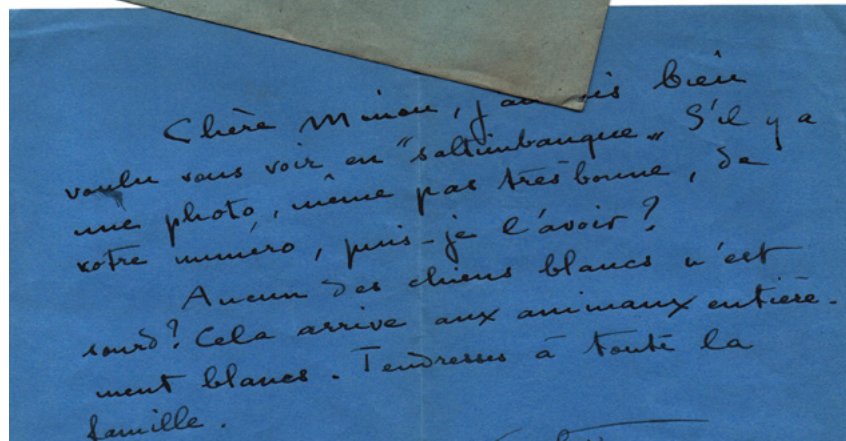 Chère Minou, j'aurais bien
voulu vous voir en "saltimbanque" S'il y a
une photo, même pas très bonne, de
votre numéro, puis-je l'avoir ?
Aucun des chiens blancs n'est
sourd ? Cela arrive aux animaux entière-
ment blancs. Tendresses à toute la
famille.